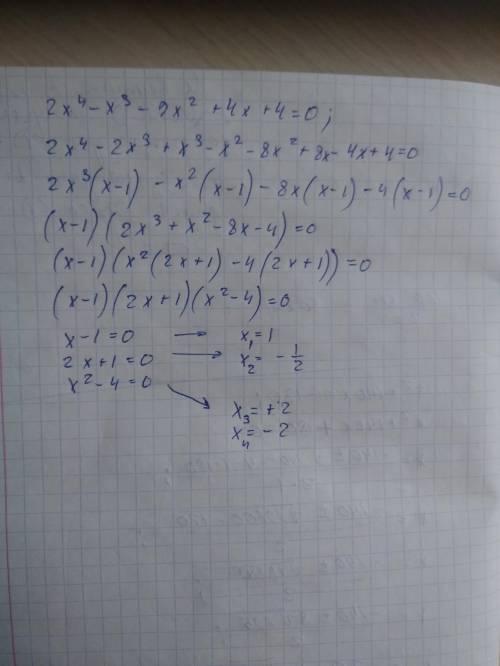 2x⁴ - x³ - 9x² + 4x + 4 = 0;
2x⁴ - 2x³ + x³ - x² - 8x² + 8x - 4x + 4 = 0
2x³(x-1) - x²(x-1) - 8x(x-1) - 4(x-1) = 0
(x-1)(2x³ + x² - 8x - 4) = 0
(x-1)(x²(2x+1) - 4(2x+1)) = 0
(x-1)(2x+1)(x²-4) = 0
x-1=0 → x₁=1
2x+1=0 → x₂= -1/2
x²-4=0
x₃=+2
x₄=-2